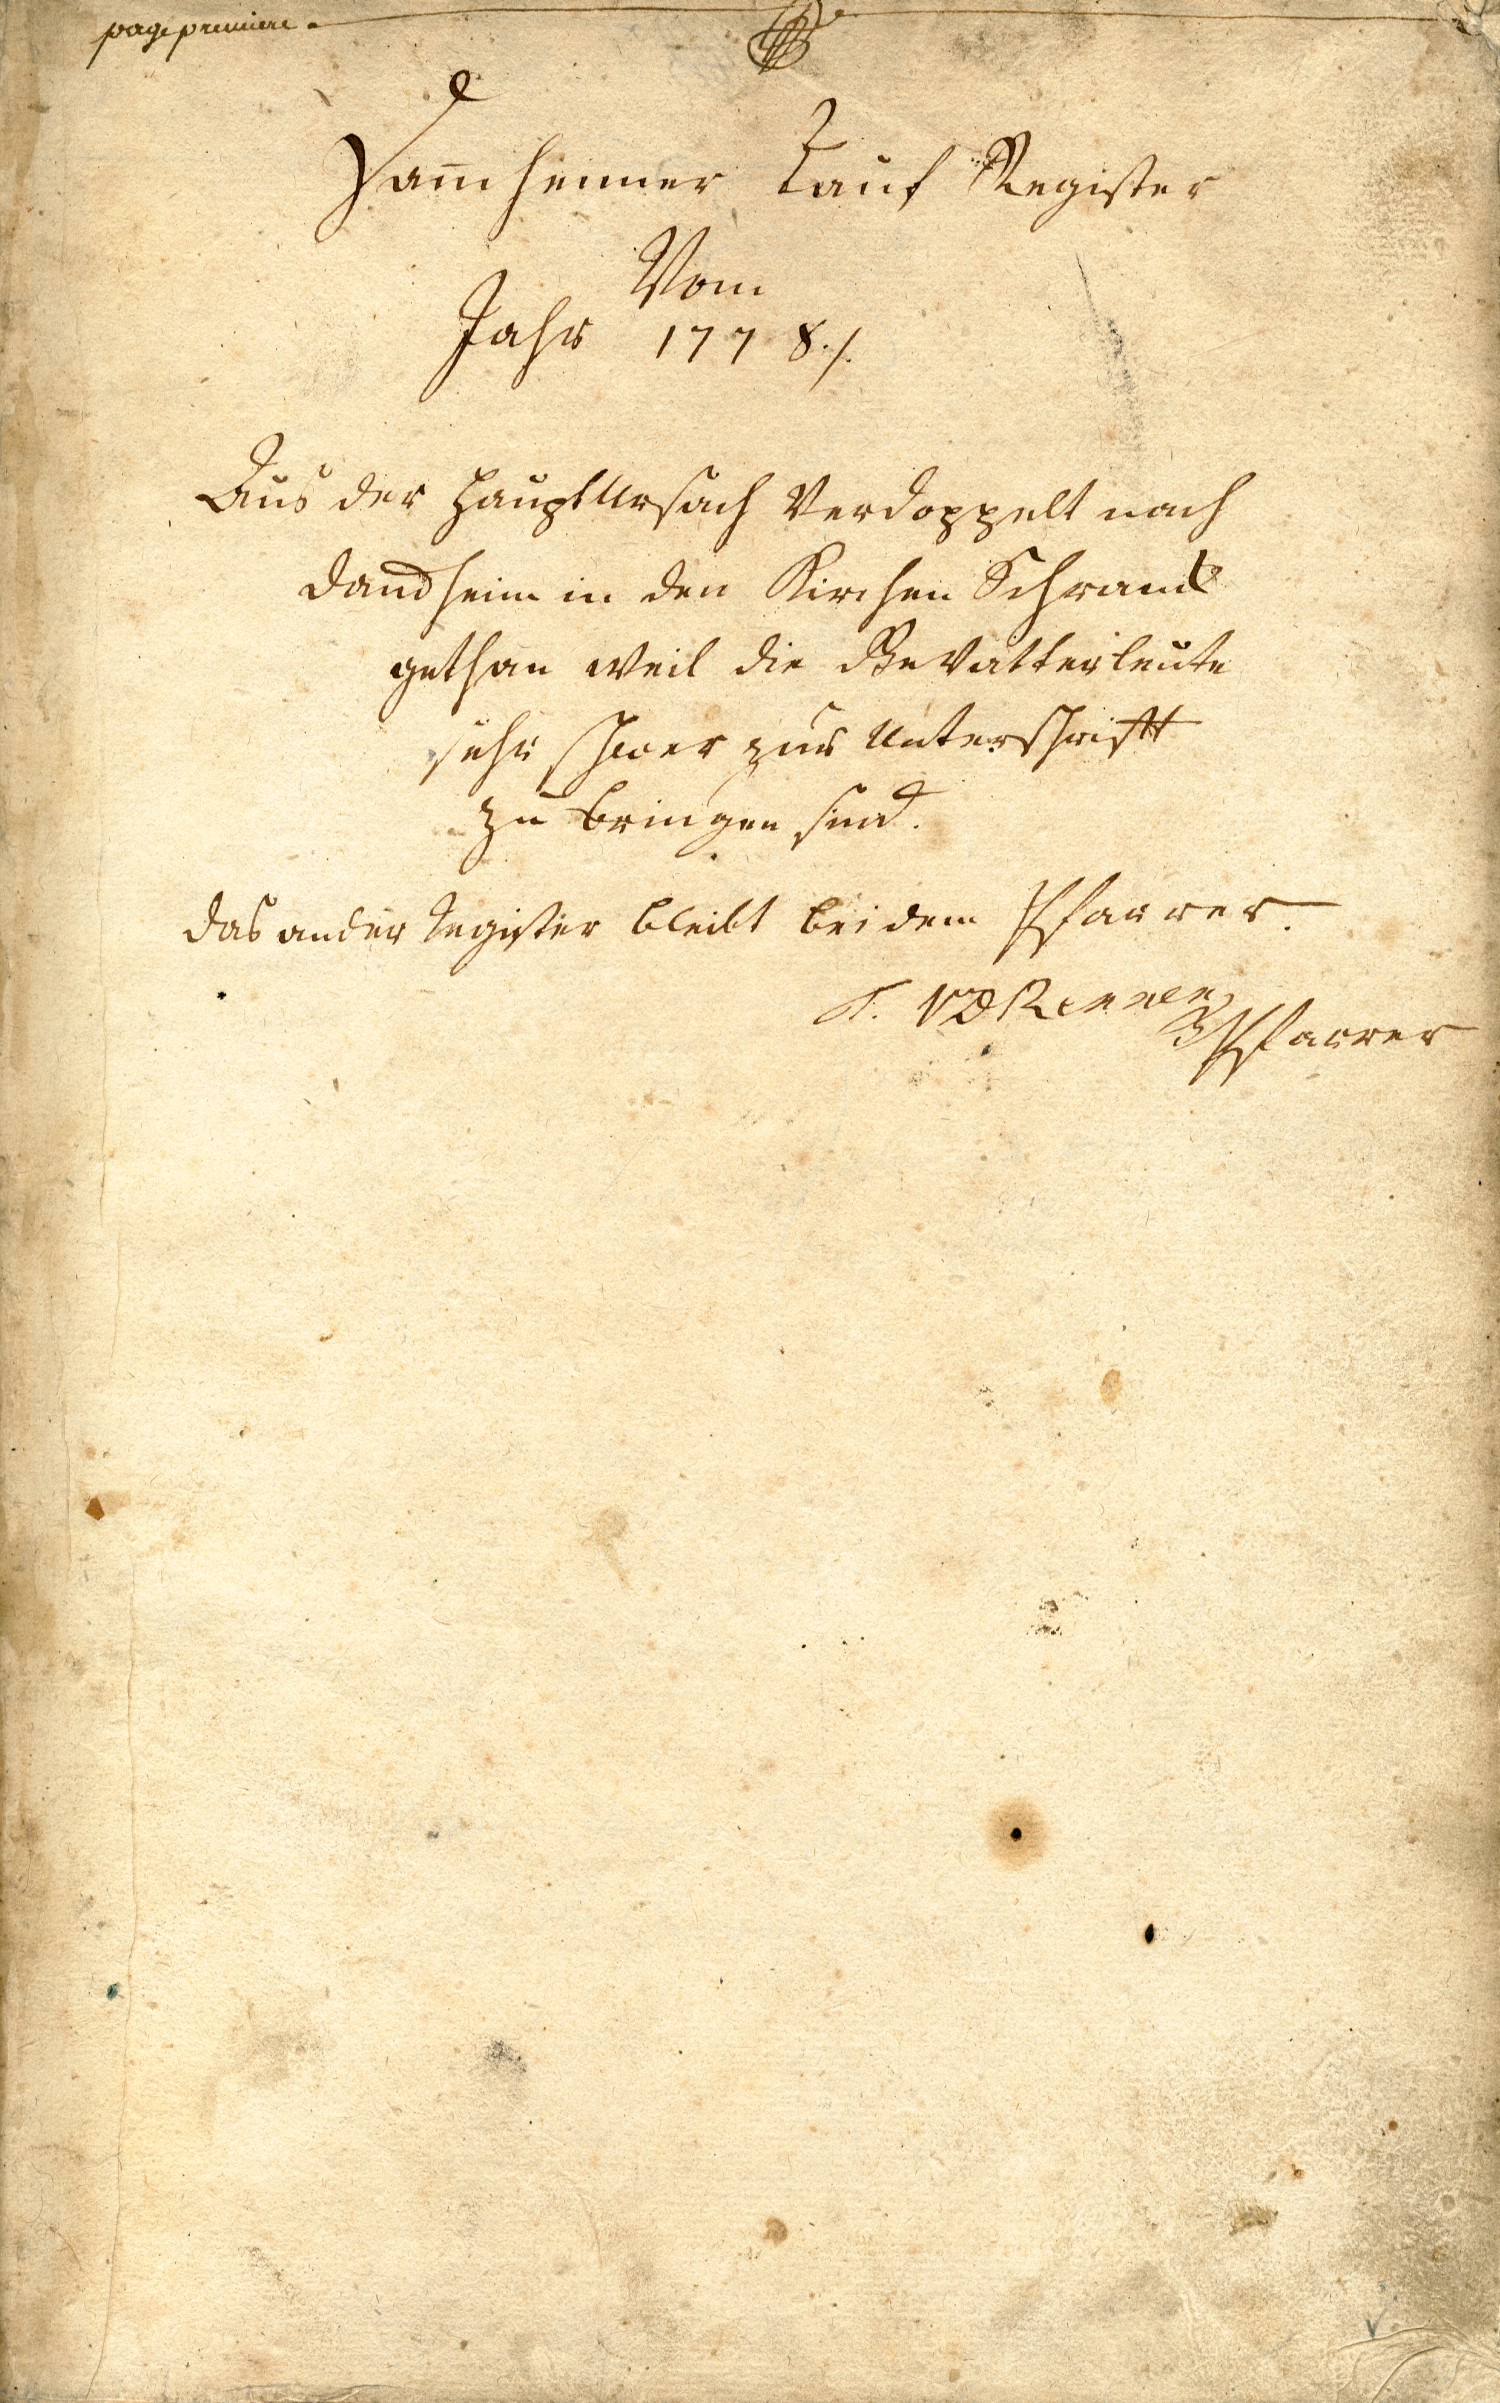 page premiere.
Dam̄heimer Tauf Register
Vom
Jahr 1778./.
Aus der HauptUrsach Verdoppelt nach
Damheim in den Kirchen Schrank
gethan weil die Gevatterleute
sehr schwer zur Unterschrifft
zu bringen sind.
das ander Register bleibt bei dem Pfarrer.
Pfarrer